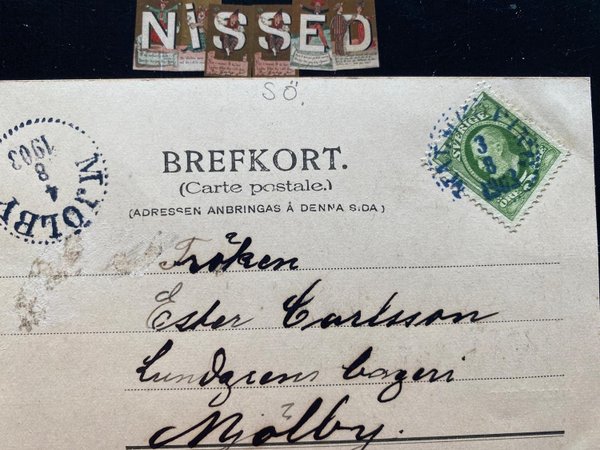 NiSSED
SÖ.
BREFKORT.
(Carte postale.)
(ADRESSEN ANBRINGAS Å DENNA SIDA)
MJÖLBY
4
8
1903
SVERIGE
3
8
1903
Fröken
Ester Carlsson
Lundgrens bageri
Mjölby.